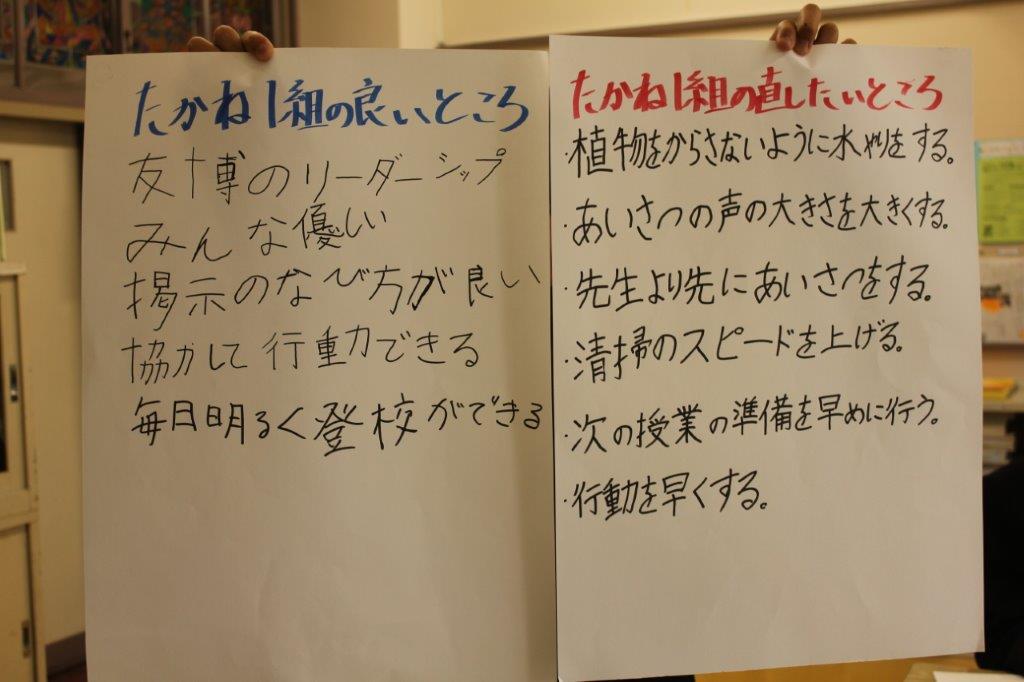 たかね1組の良いところ
友博のリーダーシップ
みんな優しい
掲示のなび方が良い
協力して行動力できる
毎日明るく登校ができる
たかね1組の直したいところ
・植物をからさないように水やりをする。
・あいさつの声の大きさを大きくする。
・先生より先にあいさつをする。
・清掃のスピードを上げる。
・次の授業の準備を早めに行う。
・行動を早くする。